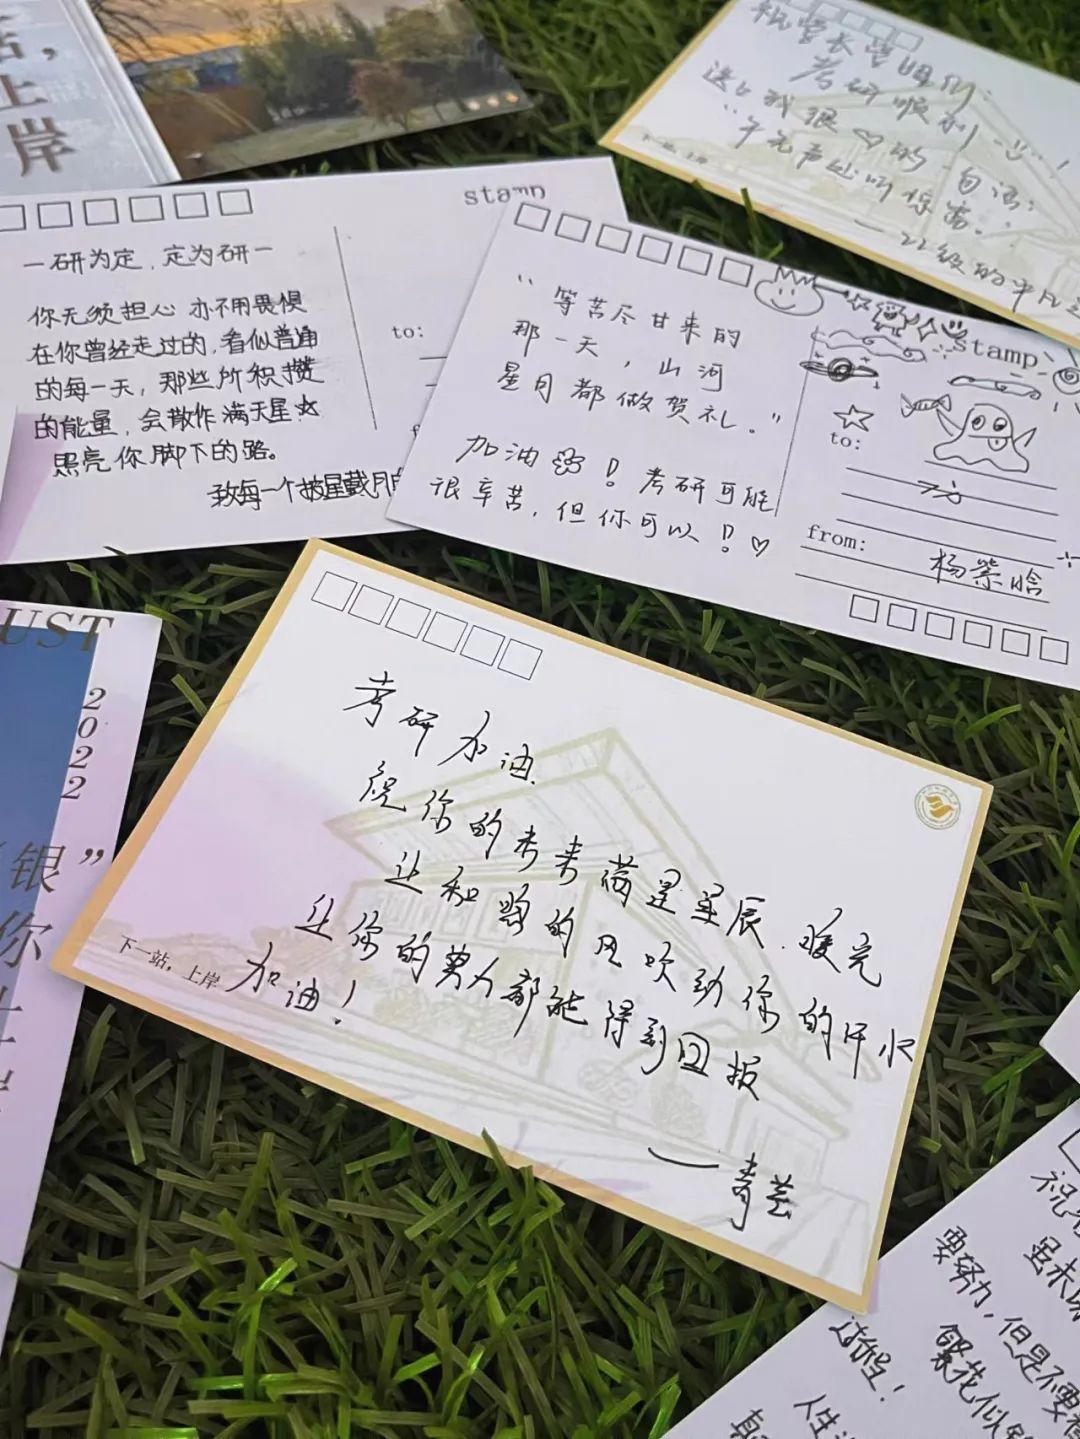 站，
上
岸
stamp
一研为定，定为研一
你无须担心 亦不用畏惧
在你曾经走过的，看似普通
的每一天，那些所积攒
的能量，会散作满天星
照亮你脚下的路。
致每一个披星戴月
to:
"等苦尽甘来的
那一天，山河
星月都做贺礼。"
加油 ！考研可能
很辛苦，但你可以！♡
stamp
to:
from:
杨 晗
考研顺利
送上我很♡的一句话：
"于无声处听惊雷。"
—22级的
考研加油
祝你的未来满是星辰，
让和 的风吹动你的汗水
让你的努力都能得到回报
加油！
下一站，上岸
——青芸
UST
2022
银”
你
上
岸
祝
虽未
要努力，但是不要
繁花似
过程！
人生